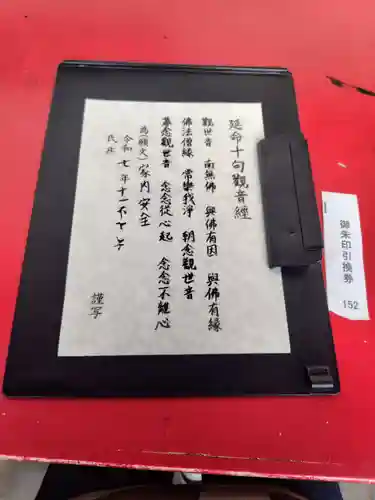 延命十句觀音經
觀世音　南無佛　與佛有因　與佛有縁
佛法僧縁　常樂我淨　朝念觀世音
暮念觀世音　念念從心起　念念不離心
為(願文)家内安全
令和七年十一
氏名
謹写
御朱印引換券
152